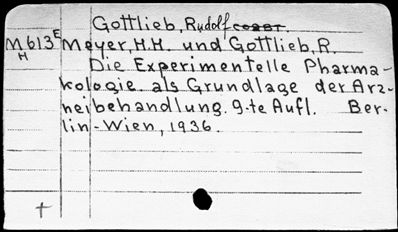 Gottlieb, Rudolf
M613E Meyer, H.H. und Gottlieb, R.
H Die Experimentelle Pharma-
kologie als Grundlage der Arz-
neibehandlung. 9-te Aufl. Ber-
lin-Wien, 1936.